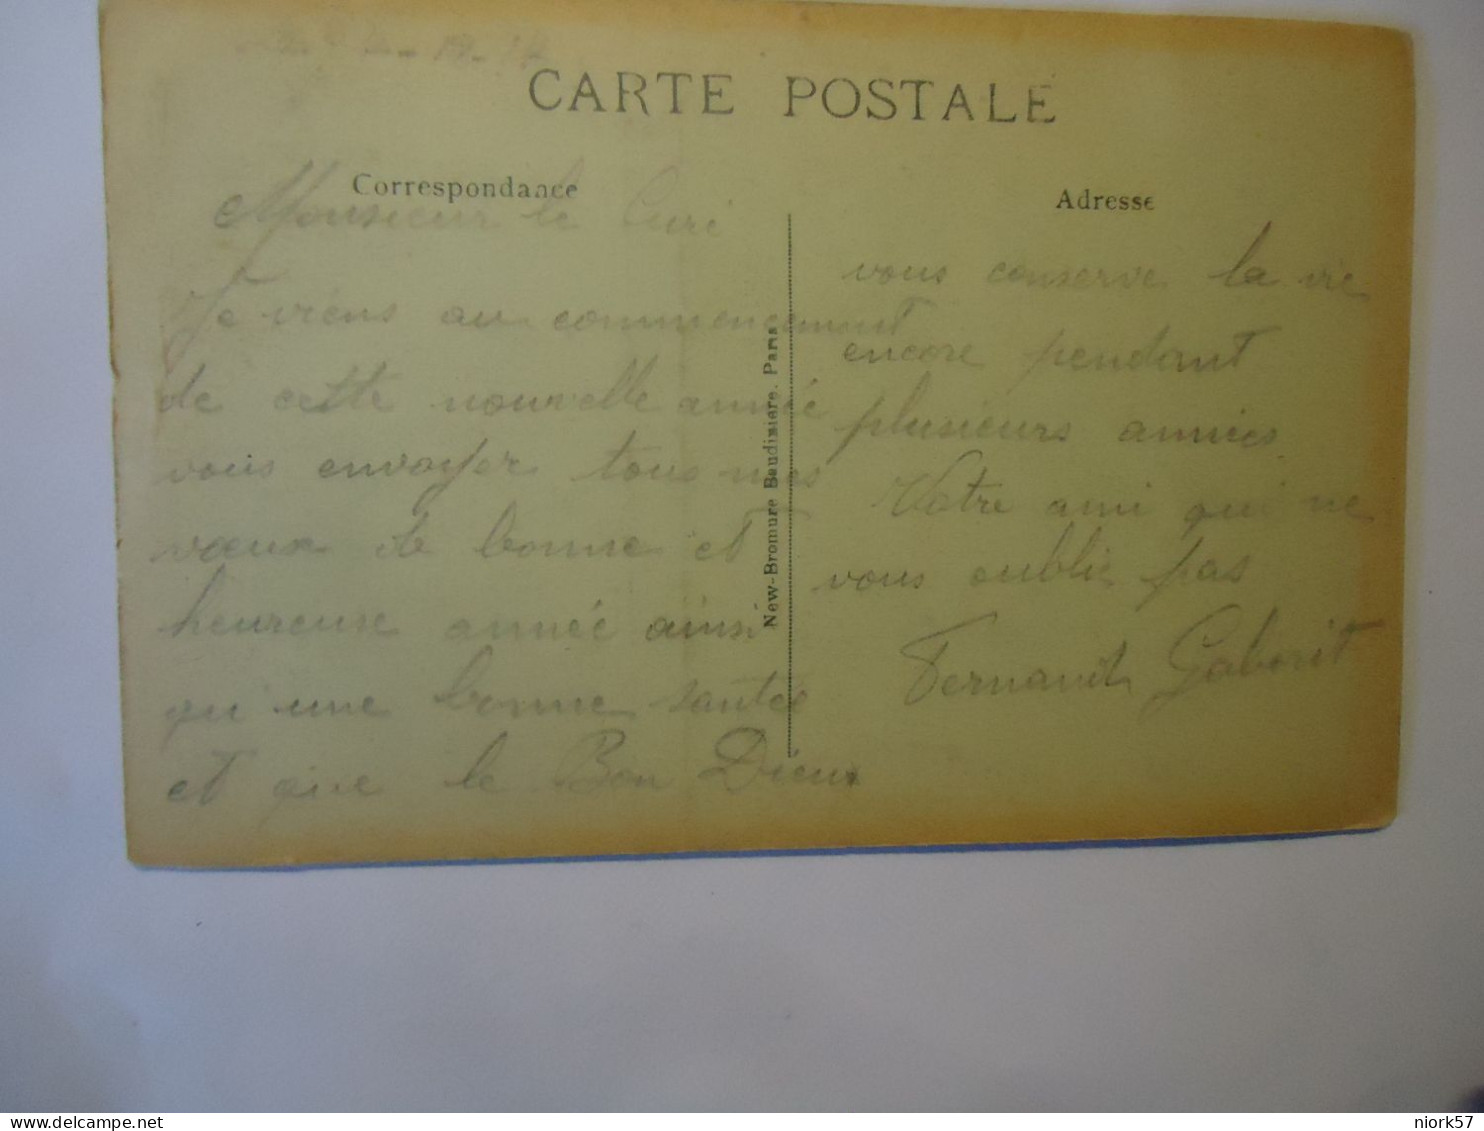 CARTE POSTALE
Correspondance
Monsieur le Curé
Je viens au commencement
de cette nouvelle année
vous envoyer tous mes
vœux de bonne et
heureuse année ainsi
qu'une bonne santée
et que le Bon Dieux
New-Bromure Baudiniere. Paris
Adresse
vous conserve la vie
encore pendant
plusieurs années
Votre ami qui ne
vous oublie pas
Fernand Gaborit
niork57